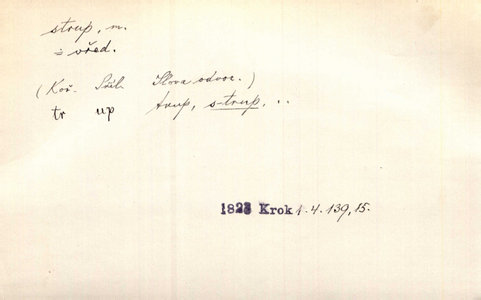 strup, m.
= vřed.
(Koř. Stčl. Slova odvoz.)
tr up trup, s-trup, ..
1823 Krok 1. 4. 139, 15.